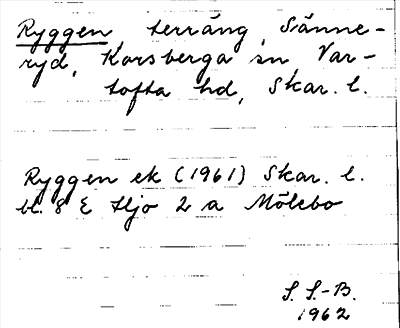 Ryggen, terräng, Sänne-
ryd, Korsberga sn, Var-
tofta hd, Skar. l.
Ryggen ek (1961) Skar. l.
bl. 8 E Hjo 2 a Mölebo
S. S.-B.
1962